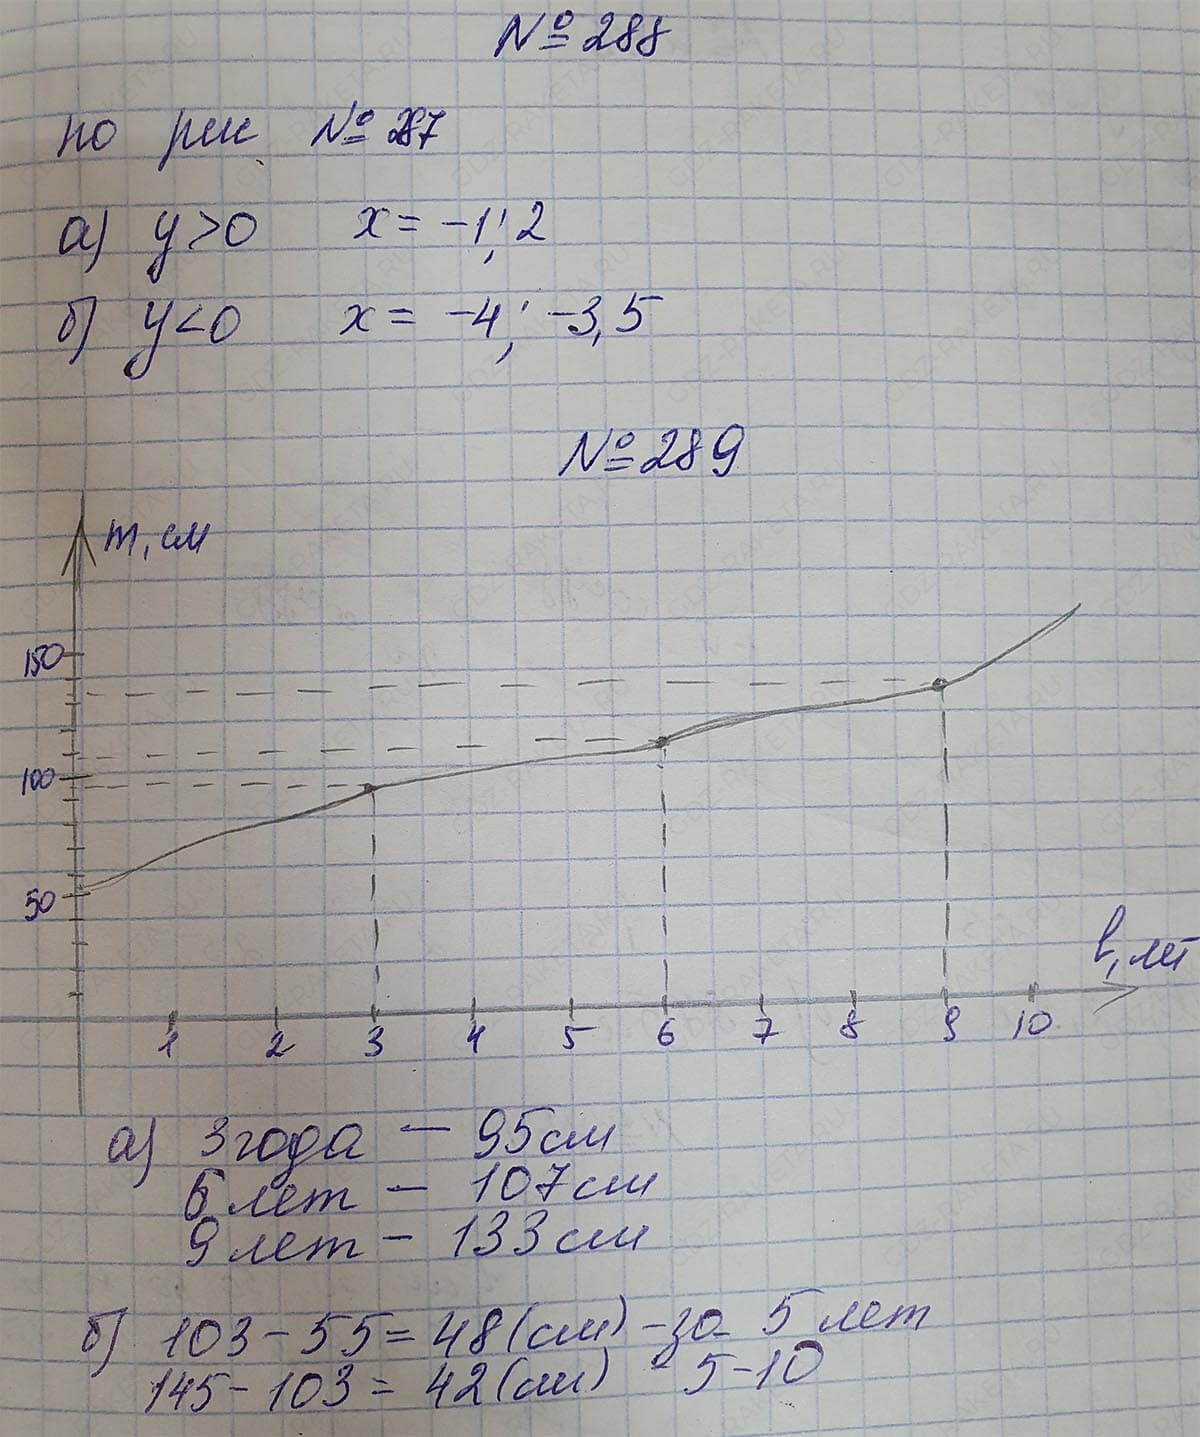 №288
по рис №287
а) y>0 x = -1; 2
б) y<0 x = -4; -3,5
№289
m, см
150
100
50
t, лет
1 2 3 4 5 6 7 8 9 10
а) 3 года – 95 см
6 лет – 107 см
9 лет – 133 см
б) 103 - 55 = 48 (см) - за 5 лет
145 - 103 = 42 (см) - 5-10